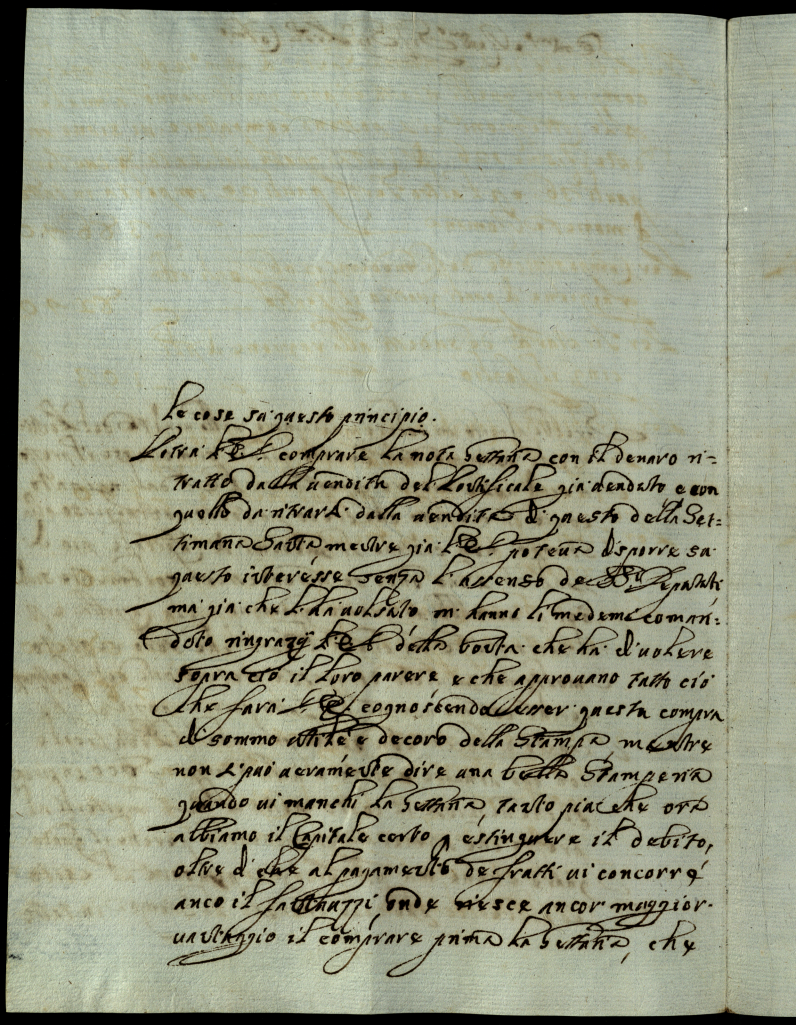 le cose sù questo principio.
Potrà V.E. comprare la nota settana con il denaro ri=
tratto dalla vendita del Pontificale già venduto, e con
quello da ritrarsi dalla vendita di questo della Set=
timana Santa, mentre già V.E. poteva disporre sù
questo interesse senza l'assenso de SS.ri Deputati
ma già che l'ha voluto m'hanno li medemi coman=
dato ringrazij V.E. della bontà che ha di volere
sopra ciò il loro parere e che approvano tutto ciò
che farà V.E. cognoscendo esser questa compra
di sommo utile e decoro della Stampa, mentre
non si può veramente dire una bella Stamperia
quando vi manchi la settana tanto più che ora
abbiamo il Capitale certo p estinguere il debito,
oltre di che al pagamento de frutti vi concorre
anco il, onde riesce ancor maggior
vantaggio il comprare prima la settana, che